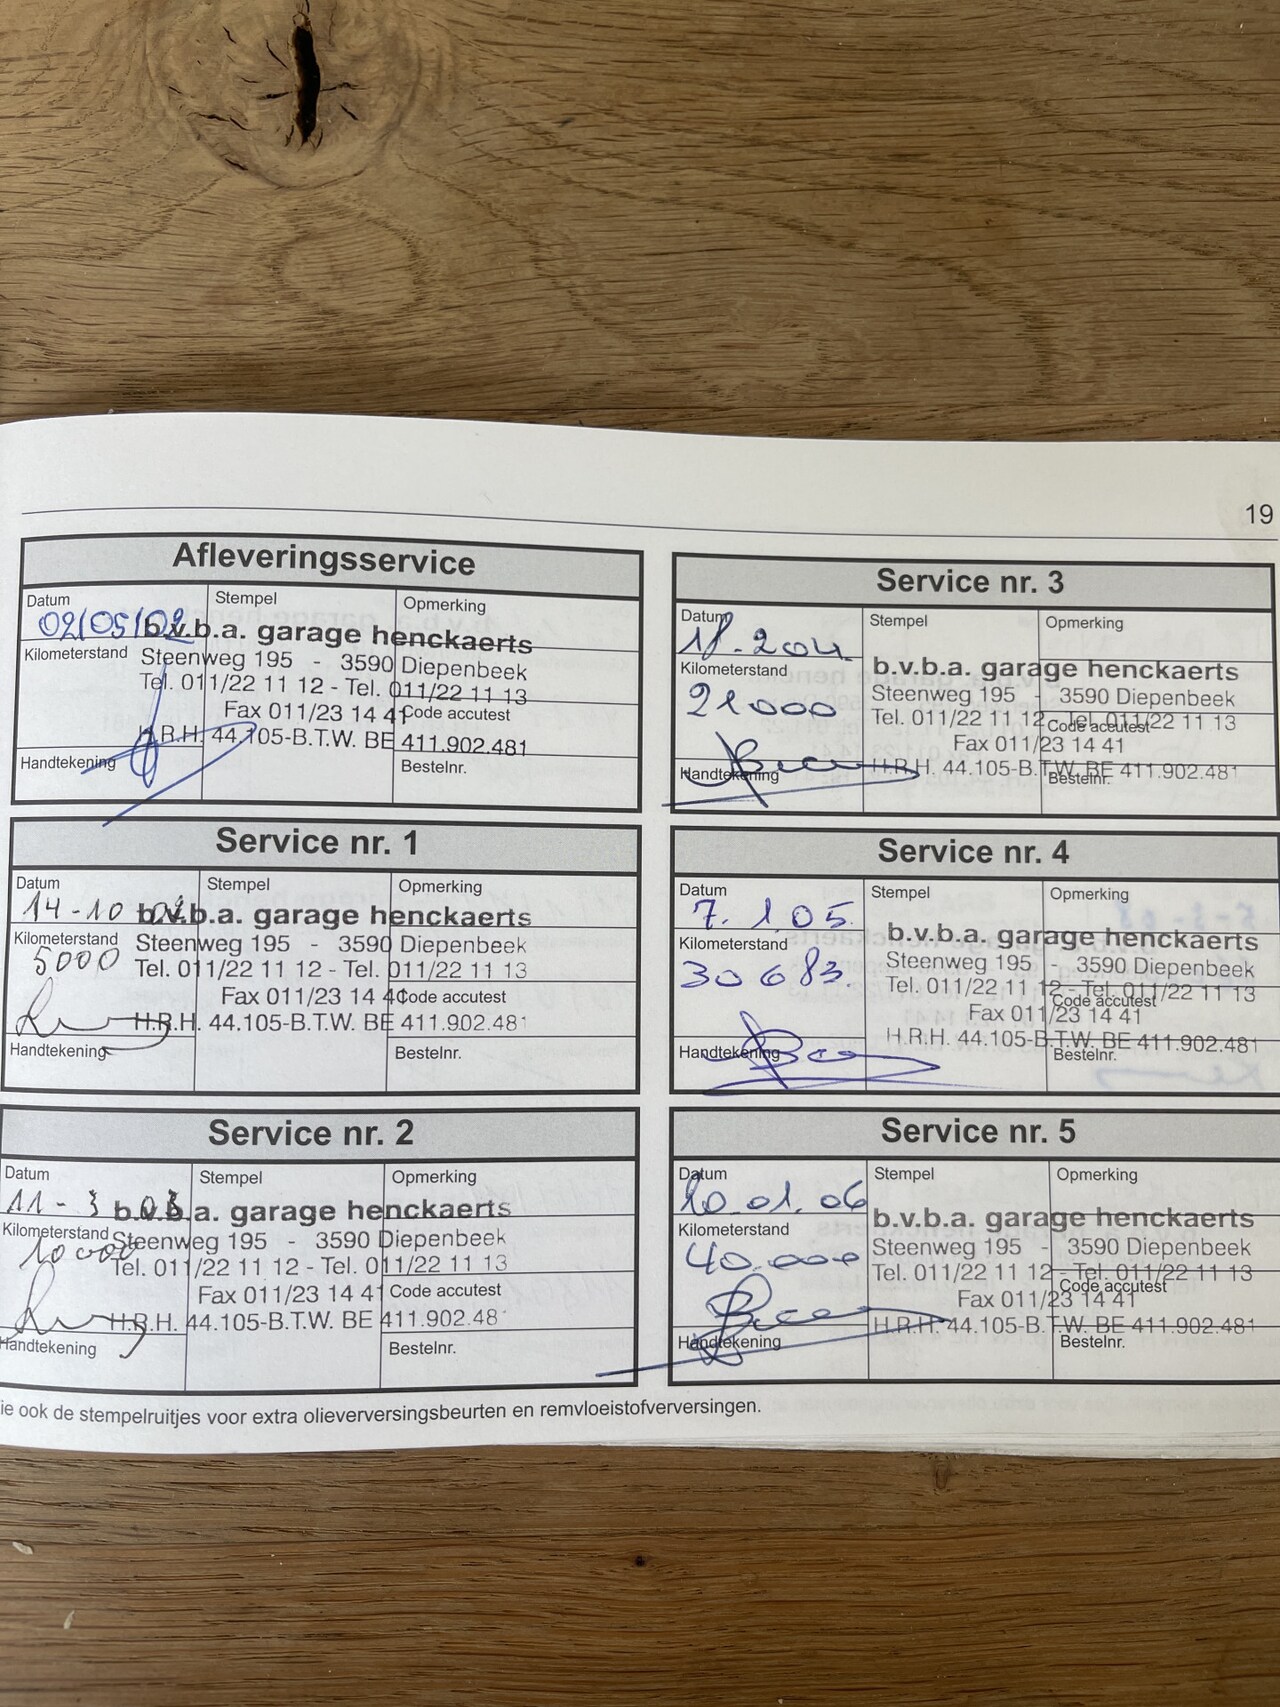 19
Afleveringsservice
Datum Stempel Opmerking
02/05/02
b.v.b.a. garage henckaerts
Kilometerstand
Steenweg 195 - 3590 Diepenbeek
Tel. 011/22 11 12 - Tel. 011/22 11 13
Fax 011/23 14 41
Code accutest
H.R.H. 44.105-B.T.W. BE 411.902.481
Handtekening Bestelnr.
Service nr. 1
Datum Stempel Opmerking
14-10 02
b.v.b.a. garage henckaerts
Kilometerstand
5000
Steenweg 195 - 3590 Diepenbeek
Tel. 011/22 11 12 - Tel. 011/22 11 13
Fax 011/23 14 4
Code accutest
H.R.H. 44.105-B.T.W. BE 411.902.481
Handtekening Bestelnr.
Service nr. 2
Datum Stempel Opmerking
11-3 03
b.v.b.a. garage henckaerts
Kilometerstand
10000
Steenweg 195 - 3590 Diepenbeek
Tel. 011/22 11 12 - Tel. 011/22 11 13
Fax 011/23 14 41
Code accutest
H.R.H. 44.105-B.T.W. BE 411.902.48
Handtekening Bestelnr.
Service nr. 3
Datum Stempel Opmerking
Kilometerstand
21000
b.v.b.a. garage henckaerts
Steenweg 195 - 3590 Diepenbeek
Tel. 011/22 11 12 - Tel. 011/22 11 13
Code accutest
Fax 011/23 14 41
H.R.H. 44.105-B.T.W. BE 411.902.481
Handtekening Bestelnr.
Service nr. 4
Datum Stempel Opmerking
7.1.05.
Kilometerstand
30683.
b.v.b.a. garage henckaerts
Steenweg 195 - 3590 Diepenbeek
Tel. 011/22 11 12 - Tel. 011/22 11 13
Code accutest
Fax 011/23 14 41
H.R.H. 44.105-B.T.W. BE 411.902.481
Handtekening Bestelnr.
Service nr. 5
Datum Stempel Opmerking
10.01.06
Kilometerstand
40.000
b.v.b.a. garage henckaerts
Steenweg 195 - 3590 Diepenbeek
Tel. 011/22 11 12 - Tel. 011/22 11 13
Code accutest
Fax 011/23 14 41
H.R.H. 44.105-B.T.W. BE 411.902.481
Handtekening Bestelnr.
ie ook de stempelruitjes voor extra olieverversingsbeurten en remvloeistofverversingen.